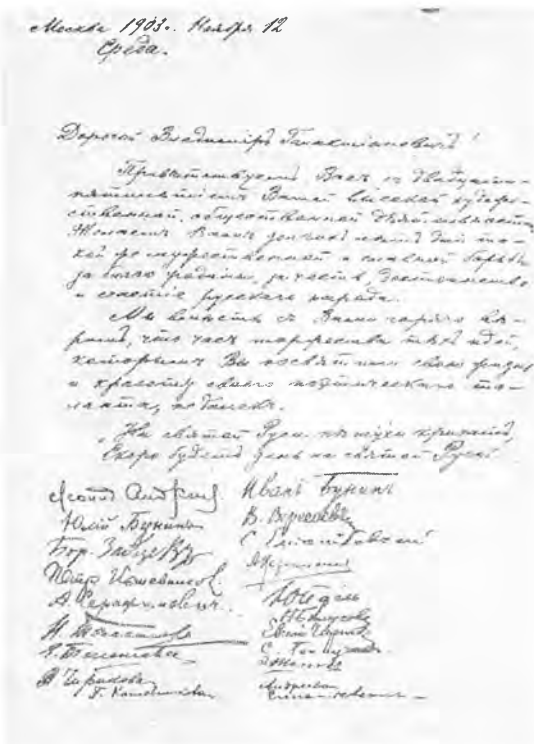 Москва 1903 г. Ноября 12
Среда.
Дорогой Владиміръ Галактіоновичъ!
Привѣтствуемъ Васъ съ двадцати-
пятилѣтіемъ Вашей высокой художе-
ственной, общественной дѣятельности.
Желаемъ Вамъ долгихъ дней та-
кой же мужественной и славной борьбы
за благо родины, за честь, достоинство
и счастіе русскаго народа.
Мы вмѣстѣ съ Вами горячо вѣ-
римъ, что часъ торжества тѣхъ идей,
которымъ Вы посвятили свою жизнь
и красоту своего поэтическаго та-
ланта, недалекъ.
"На святой Руси пѣтухи кричатъ,
Скоро будетъ день на святой Руси"
Леонид Андреев
Иванъ Бунинъ
Юлій Бунинъ
В. Вересаевъ
Бор. Зайцевъ
С.
Петр Кожевников
А. Серафимовичъ
Н. Телешовъ
Е. Телешова
С. Голоушев
Андреева